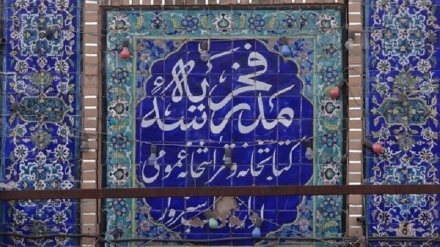 مدرسه فخریه
کتابخانه و قرائتخانه عمومی
سبزوار